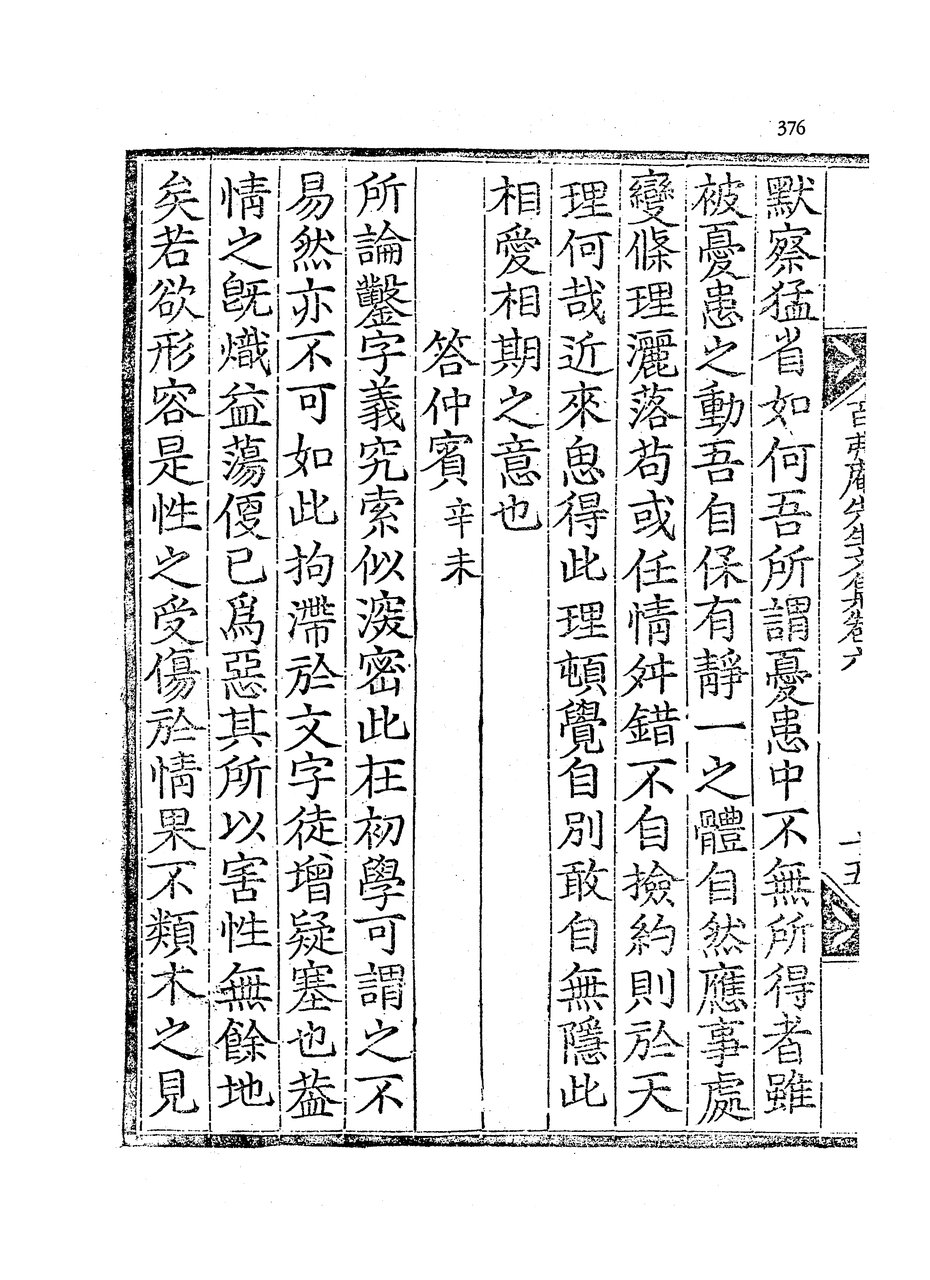 376
默察猛省如何吾所謂憂患中不無所得者雖
被憂患之動吾自保有靜一之體自然應事處
變條理灑落苟或任情舛錯不自撿約則於天
理何哉近來思得此理頓覺自別敢自無隱此
相愛相期之意也
答仲賓辛未
所論鑿字義究索似深密此在初學可謂之不
易然亦不可如此拘滯於文字徒增疑塞也蓋
情之旣熾益蕩便已爲惡其所以害性無餘地
矣若欲形容是性之受傷於情果不類木之見
先生文集卷六
十五